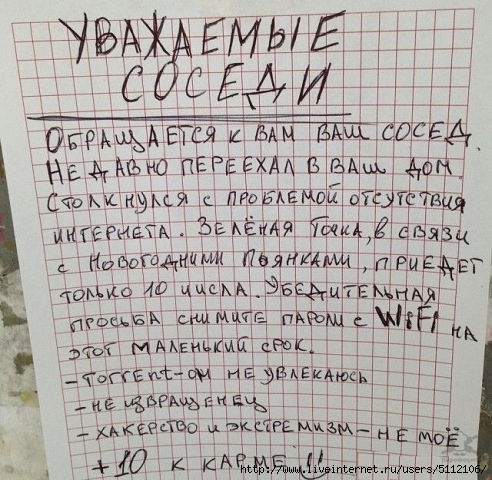 УВАЖАЕМЫЕ
СОСЕДИ
ОБРАЩАЕТСЯ К ВАМ ВАШ СОСЕД.
НЕДАВНО ПЕРЕЕХАЛ В ВАШ ДОМ.
СТОЛКНУЛСЯ С ПРОБЛЕМОЙ ОТСУТСТВИЯ
ИНТЕРНЕТА. ЗЕЛЁНАЯ ТОЧКА, В СВЯЗИ
С НОВОГОДНИМИ ПЬЯНКАМИ, ПРИЕДЕТ
ТОЛЬКО 10 ЧИСЛА. УБЕДИТЕЛЬНАЯ
ПРОСЬБА СНИМИТЕ ПАРОЛИ С WiFi НА
ЭТОТ МАЛЕНЬКИЙ СРОК.
- ТОГГЕНТ-ОМ НЕ УВЛЕКАЮСЬ
- НЕ ИЗВРАЩЕНЕЦ
- ХАКЕРСТВО И ЭКСТРЕМИЗМ - НЕ МОЁ
+10 К КАРМЕ
http://www.liveinternet.ru/users/5112106/